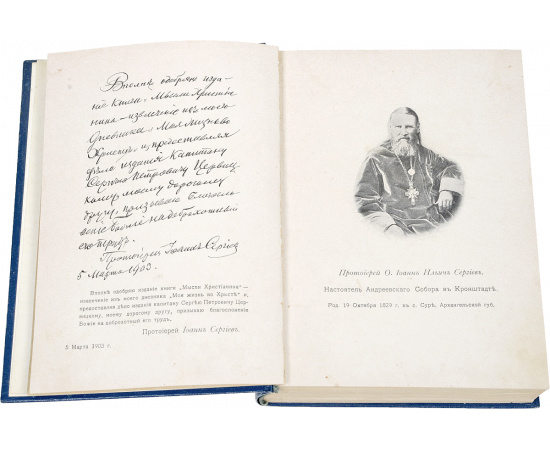 Вполнѣ одобряю изда-
ніе книги „Мысли Христіа-
нина – извлеченіе изъ моего
дневника „Моя жизнь во
Христѣ“ и, предоставляя
дѣло изданія капитану
Сергѣю Петровичу
моему дорогому
другу, призываю благосло-
веніе Божіе на доброхотный
его трудъ.
Протоіерей Іоаннъ Сергіевъ.
5 Марта 1903.
Вполнѣ одобряю изданіе книги „Мысли Христіанина“ –
извлеченіе изъ моего дневника „Моя жизнь во Христѣ“ и,
предоставляя дѣло изданія капитану Сергѣю Петровичу
моему дорогому другу, призываю благословеніе
Божіе на доброхотный его трудъ.
Протоіерей Іоаннъ Сергіевъ.
5 Марта 1903 г.
Протоіерей О. Іоаннъ Ильичъ Сергіевъ,
Настоятель Андреевскаго Собора въ Кронштадтѣ.
Род. 19 Октября 1829 г. въ с. Сурѣ, Архангельской губ.